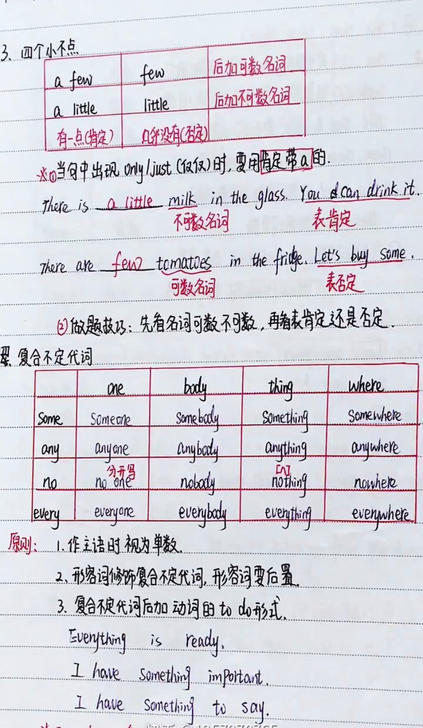 3、四个小不点
a few few 后加可数名词
a little little 后加不可数名词
有一点(肯定) 几乎没有(否定)
※①当句中出现 only/just (仅仅)时,要用肯定带a的.
There is a little milk in the glass. You can drink it.
不可数名词 表肯定
There are few tomatoes in the fridge. Let's buy some.
可数名词 表否定
②做题技巧:先看名词可数不可数,再看表肯定还是否定.
复合不定代词
one body thing where
some someone somebody something somewhere
any anyone anybody anything anywhere
分开写 [ʌ]
no no one nobody nothing nowhere
every everyone everybody everything everywhere
原则: 1.作主语时视为单数.
2、形容词修饰复合不定代词,形容词要后置.
3.复合不定代词后加动词的to do形式.
Everything is ready.
I have something important.
I have something to say.